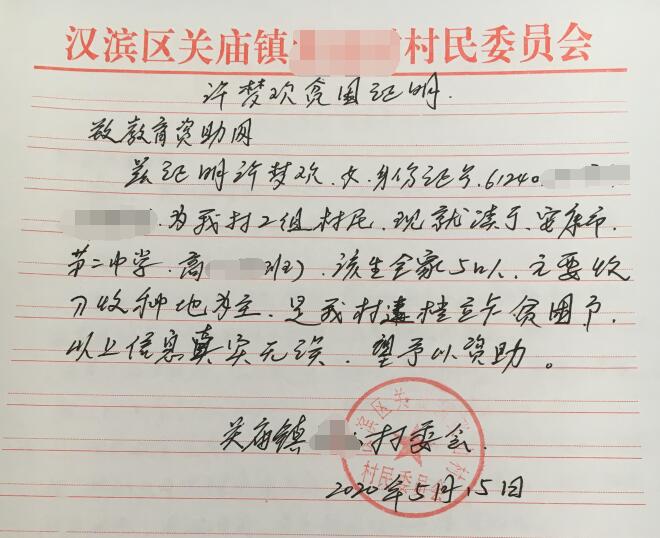 汉滨区关庙镇 村民委员会
许梦欢贫困证明.
致教育资助网
兹证明许梦欢.女.身份证号.61240
为我村2组村民.现就读于.安康市.
第二中学.高 班).该生全家5口人.主要收
入收种地为主.是我村建档立卡贫困户.
以上信息真实无误.望予以资助。
关庙镇 村委会.
2020年5月15日
汉滨区关
村民委员会